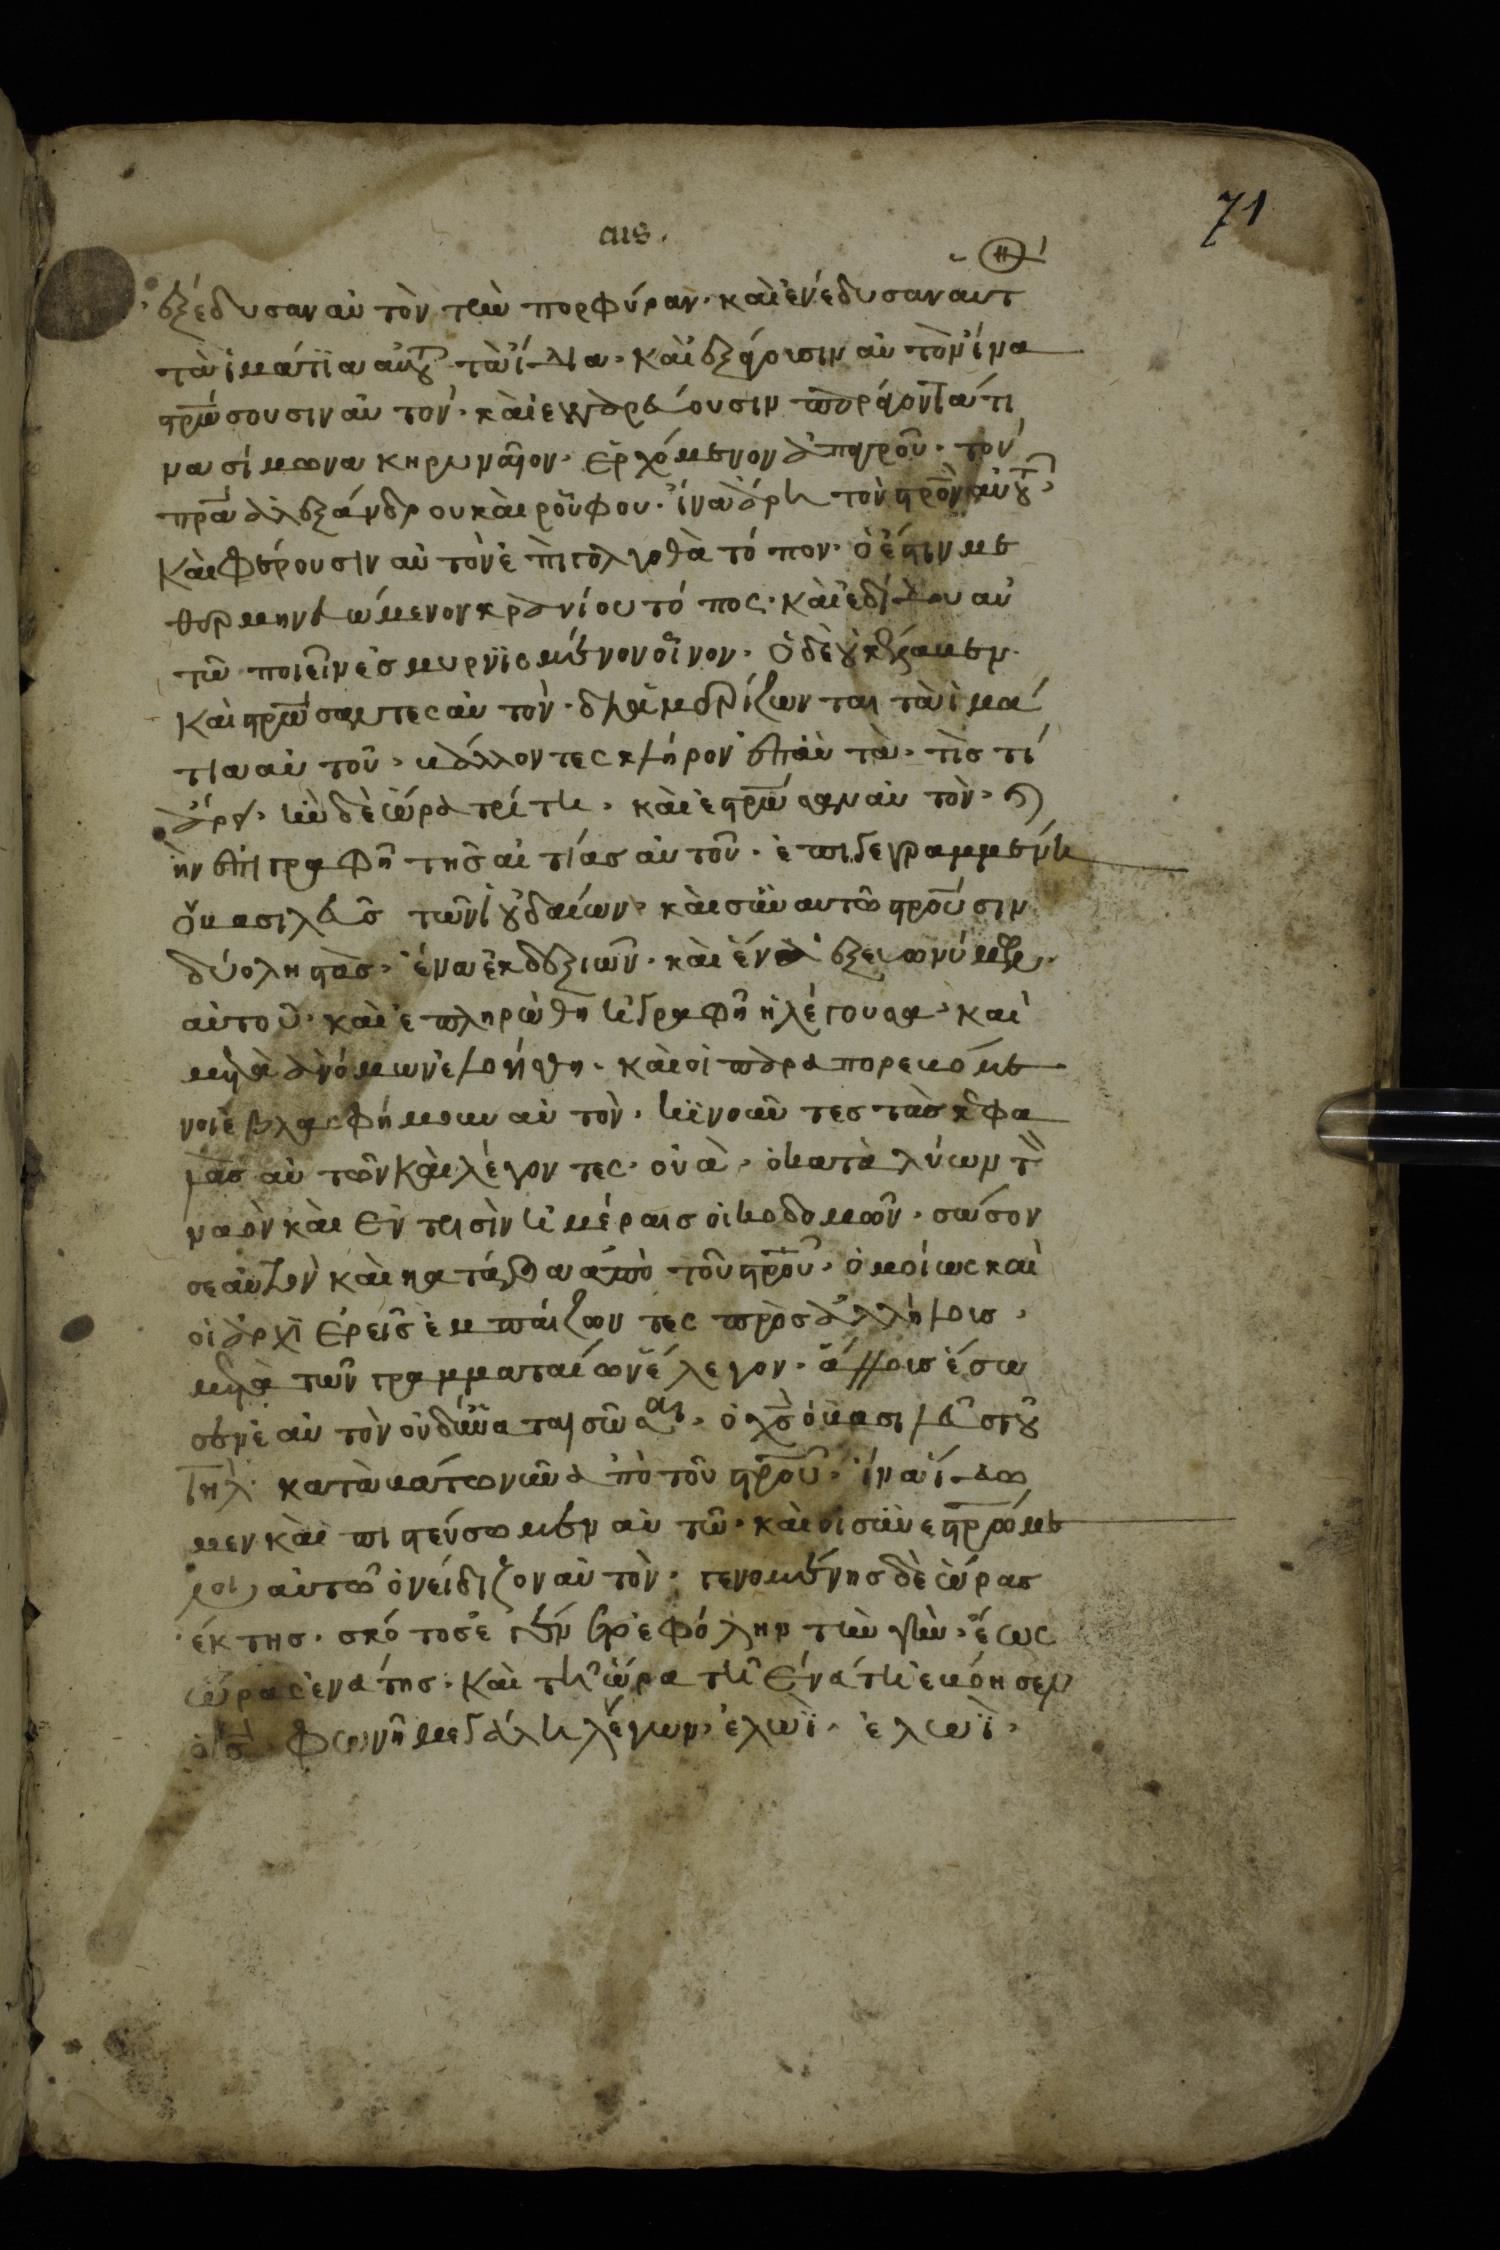 71
ἐξέδυσαν αὐτὸν τὴν πορφύραν· καὶ ἐνέδυσαν αυτ
τὰ ἱμάτϊα αὐτοῦ τὰ ἴδια· καὶ ἐξάγουσιν αὐτὸν ἵνα
στρώσουσιν αὐτόν· καὶ ἐγγαρεύουσιν παράγοντά τι
να σίμωνα κηρυναῖον· ἐρχόμενον ἀπ' ἀγροῦ· τὸν
πρα ἀλεξάνδρου καὶ ῥούφου· ἵνα ἄρη τὸν στρον αὐτοῦ·
Καὶ φέρουσιν αὐτὸν ἐπὶ γολγοθὰ τόπον· ὅ ἐστιν με
θερμηνευόμενον κρανίου τόπος· καὶ ἐδίδουν αὐ
τῶ ποιεῖν ἐσμυρνϊσμένον οἶνον· ὁ δὲ οὐκ ἔλαβεν·
Καὶ στρώσαντες αὐτὸν· διαμερίζονται τὰ ἱμά
τια αὐτοῦ· βάλλοντες κλῆρον ἐπ' αὐτὰ· τὶς τί
ἄρη· ἦν δὲ ὥρα τρίτη· καὶ ἐστρωσαν αὐτὸν· καὶ
ἦν ἐπιγραφὴ τῆς αἰτίας αὐτοῦ· ἐπιγεγραμμένη
ὁ βασιλεὺς τῶν ἰουδαίων· καὶ σὺν αυτῶ στροῦσιν
δύο ληστὰς· ἕνα ἐκ δεξιῶν· καὶ ἕνα ἐξ εὐωνύμων
αὐτοῦ· καὶ ἐπληρώθη ἡ γραφὴ ἡ λέγουσα· καὶ
μετὰ ἀνόμων ἐλογίσθη· καὶ οἱ παραπορευόμε
νοι ἐβλασφήμουν αὐτὸν· κϊνοῦντες τὰς κεφα
λὰς αὐτῶν καὶ λέγοντες· οὐὰ· ὁ καταλύων τὸν
ναὸν καὶ ἐν τρισὶν ἡμέραις οἰκοδομῶν· σῶσον
σεαυτὸν καὶ κατάβα ἀπὸ τοῦ στροῦ· ὁμοίως καὶ
οἱ ἀρχιερεῖς ἐμπαίζοντες πρὸς ἀλλήλους·
μετὰ τῶν γραμματαίων ἔλεγον· ἄλλους ἔσω
σεν ἑαυτὸν οὐ δύναται σῶσαι· ὁ χς ὁ βασιλεὺς τοῦ
ιηλ καταβάτω νῦν ἀπὸ τοῦ στροῦ· ἵνα ἴδω
μεν καὶ πιστεύσωμεν αὐτῶ· καὶ οἱ σὺν εστρωμέ
νοι αὐτῶ ὀνείδιζον αὐτὸν· γενομένης δὲ ὥρας
ἕκτης· σκότος ἐγένετο ἐφ' ὅλην τὴν γῆν· ἕως
ὥρας ἐνάτης· Καὶ τῆ ὥρα τῆ ἐνάτη ἐβόησεν
ὁ ις φωνῆ μεγάλη λέγων· ἐλωῒ· ἐλωῒ·